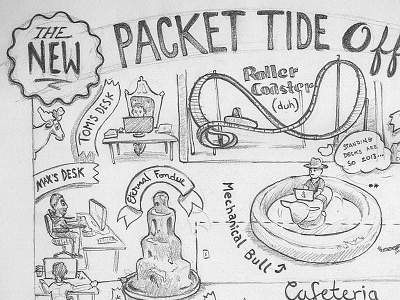 THE
NEW
PACKET TIDE Off
TOM'S DESK
Roller
Coaster
(duh)
STANDING
DESKS ARE
SO 2013...
MAX'S DESK
Eternal Fondue
Mechanical Bull
Cafeteria